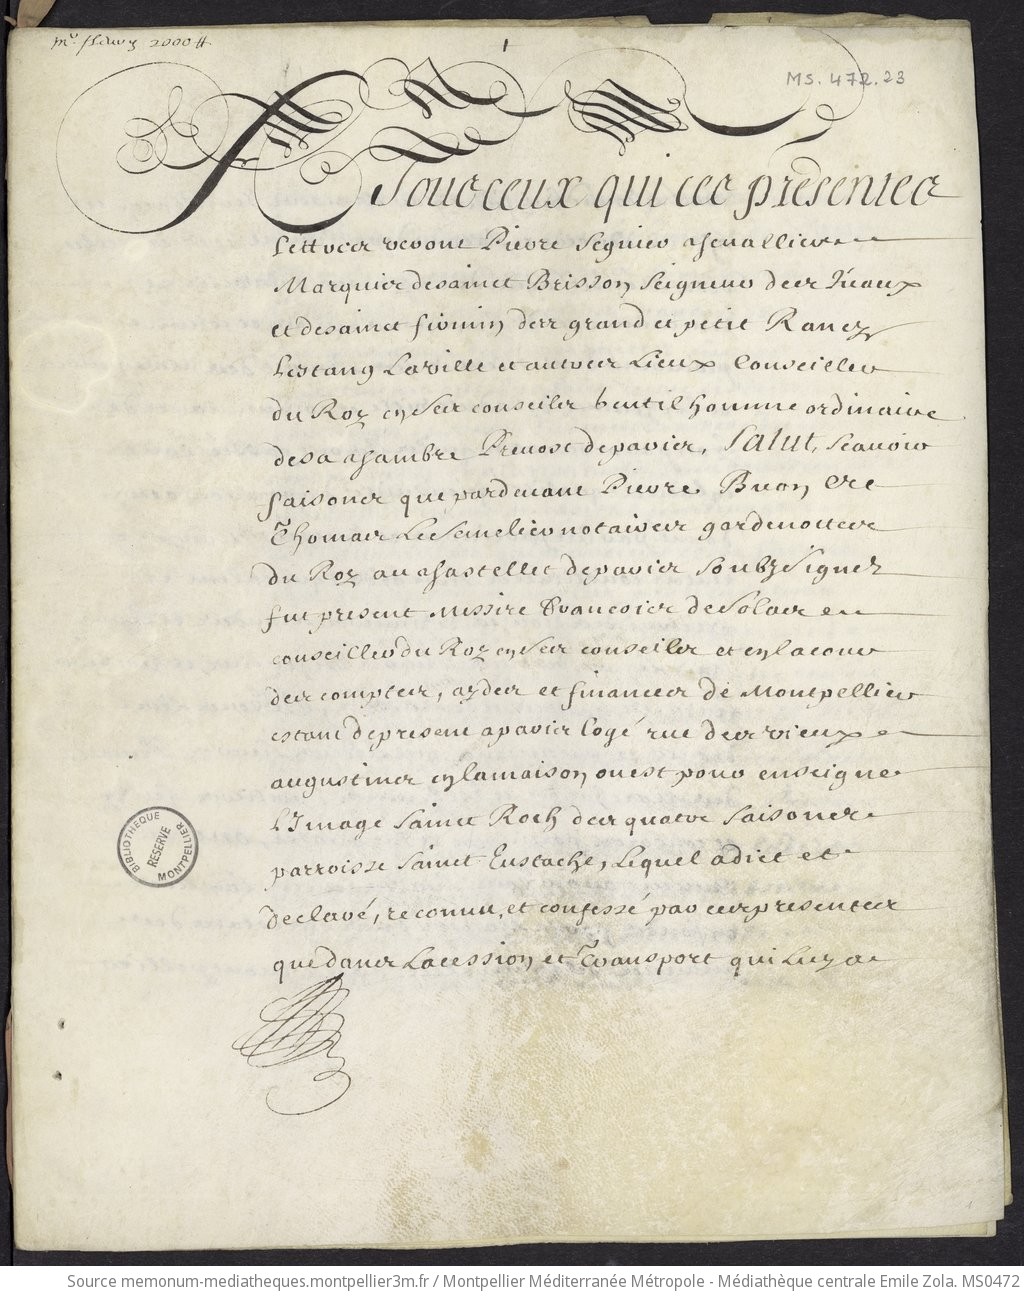 Mr. fleury 2000 ll
1
MS. 472.23
A Tous ceux qui ces présentes
Lettres verront Pierre Seguier Chevallier
Marquis de sainct Brisson, Seigneur des Ruaux
et de sainct firmin, des grand et petit Rancy
Lestang Laville et autres Lieux Conseiller
du Roy en ses conseils Gentilhomme ordinaire
de sa chambre Prevost de paris, Salut, scavoir
faisons que pardevant Pierre Buon Et
Thomas Le Semelier notaires gardenottes
du Roy au chastellet de paris soubzSignez
fut present Messire francois de Solas
conseiller du Roy en ses conseils et en la cour
des comptes, aydes et finances de Montpellier
estant de present a paris logé rue des vieux
augustins en la maison ou est pour enseigne
L'Image Sainct Roch des quatre saisons
parroisse Sainct Eustache, Lequel a dict et
declaré, reconnu, et confessé par ces presentes
que dans La cession et Transport qui Luy a
BIBLIOTHEQUE
RESERVE
MONTPELLIER
Source memonum-mediatheques.montpellier3m.fr / Montpellier Méditerranée Métropole - Médiathèque centrale Emile Zola. MS0472